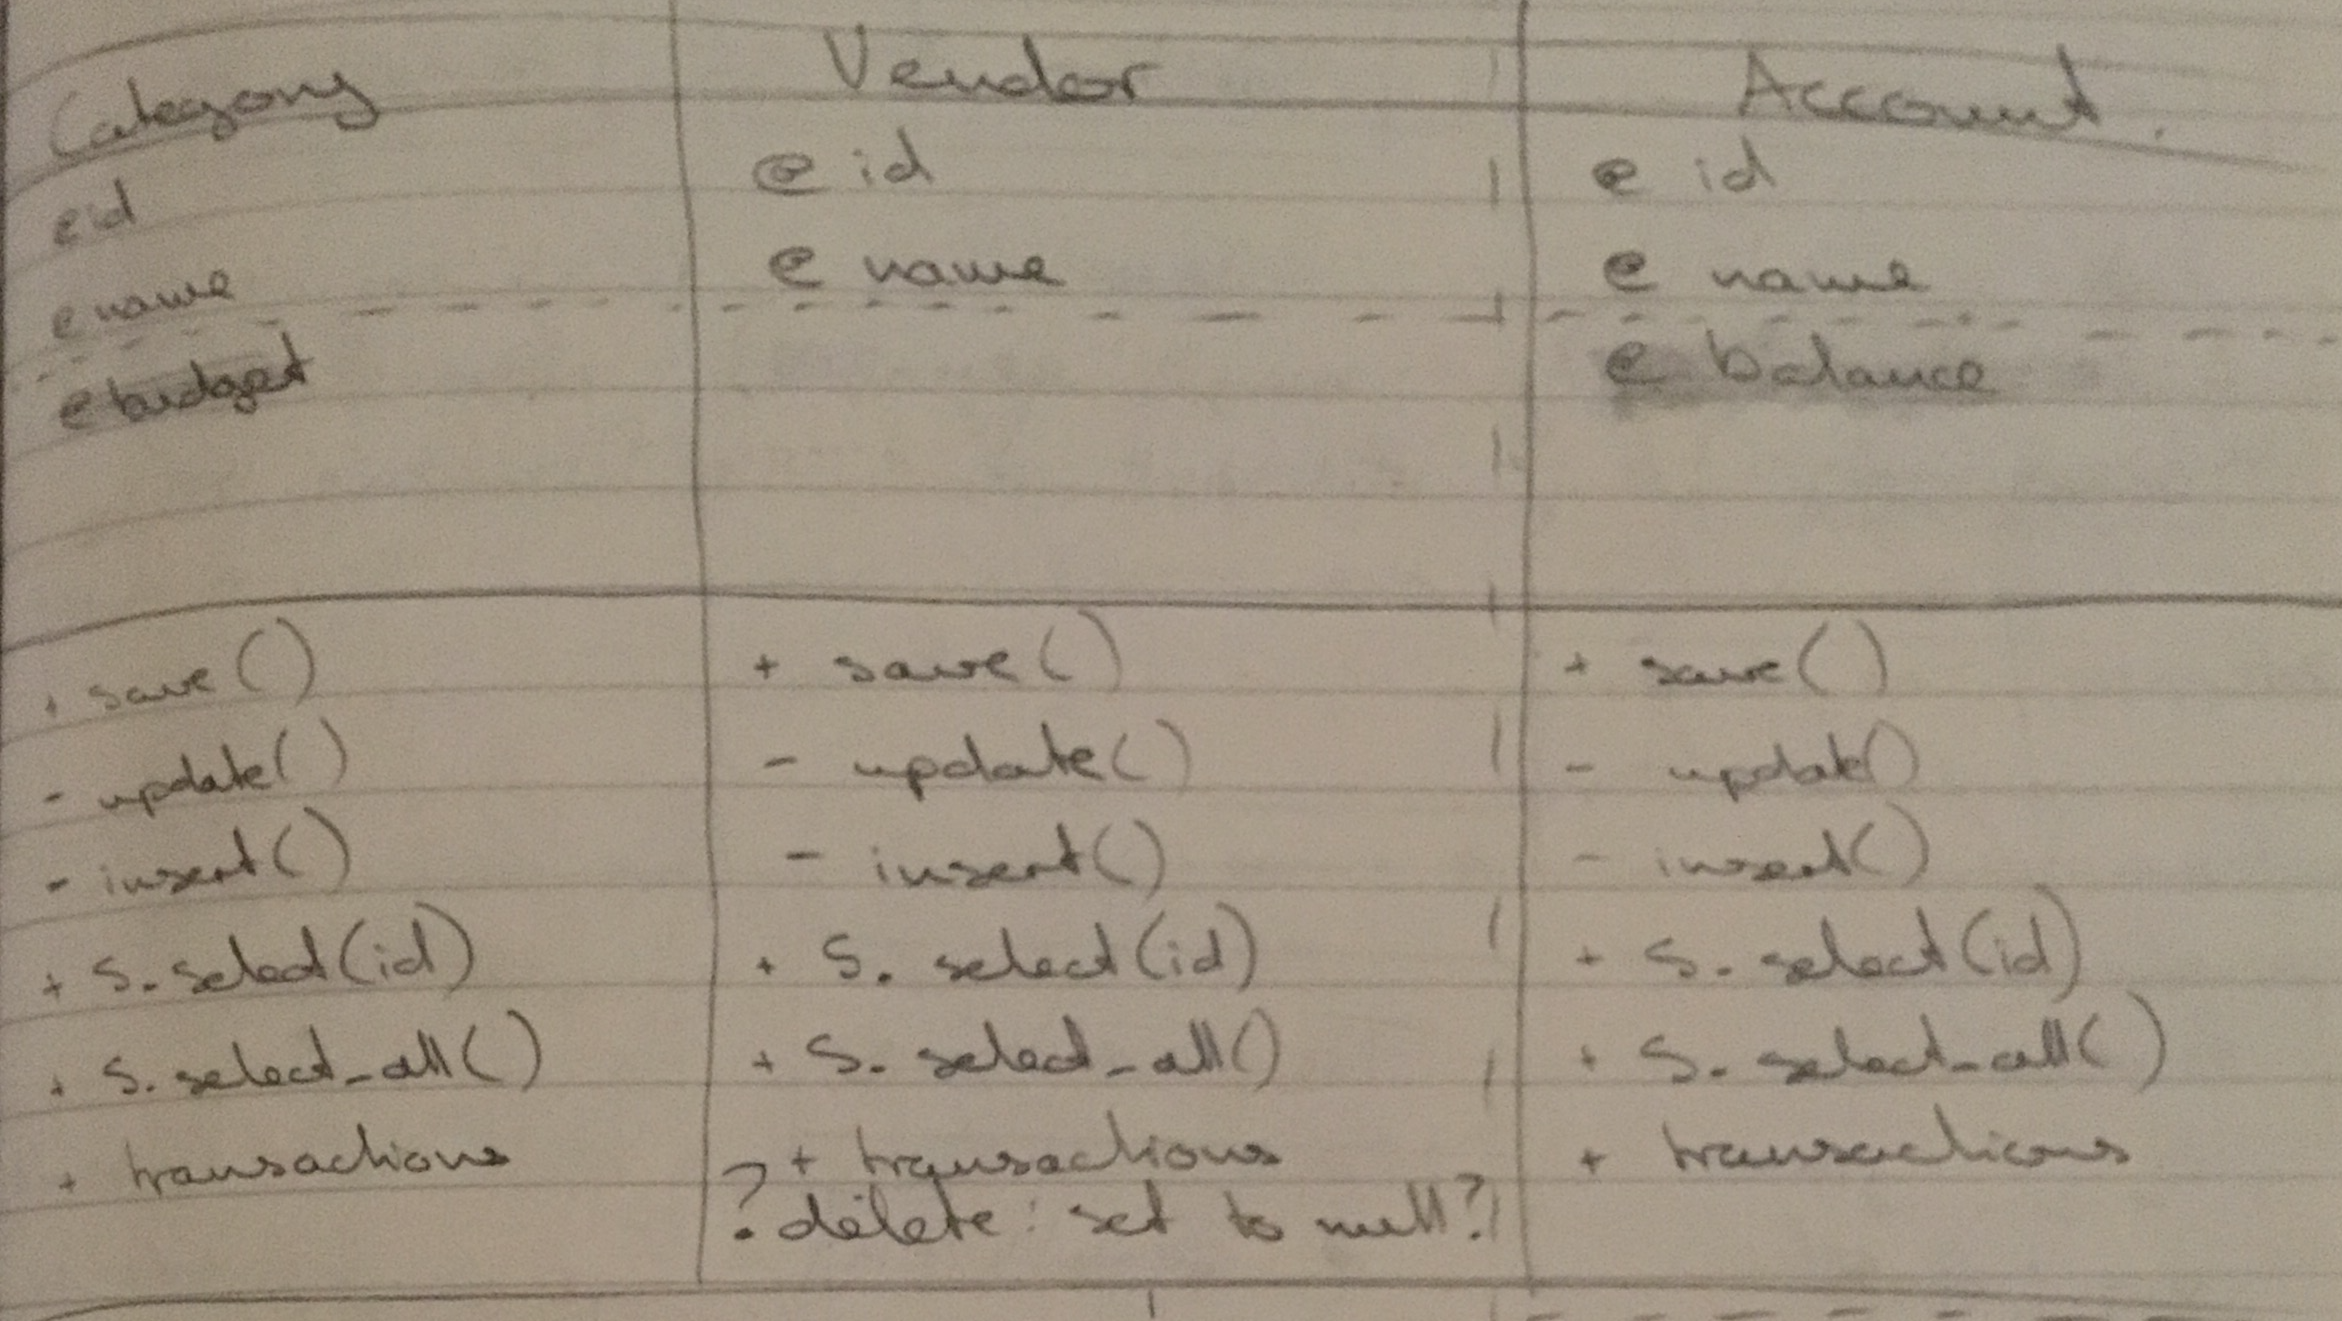 Category
@ id
@ name
@ budget
+ save()
- update()
- insert()
+ S. select(id)
+ S. select_all()
+ transactions
Vendor
@ id
@ name
+ save()
- update()
- insert()
+ S. select(id)
+ S. select_all()
+ transactions
? delete: set to null?
Account.
@ id
@ name
@ balance
+ save()
- update()
- insert()
+ S. select(id)
+ S. select_all()
+ transactions